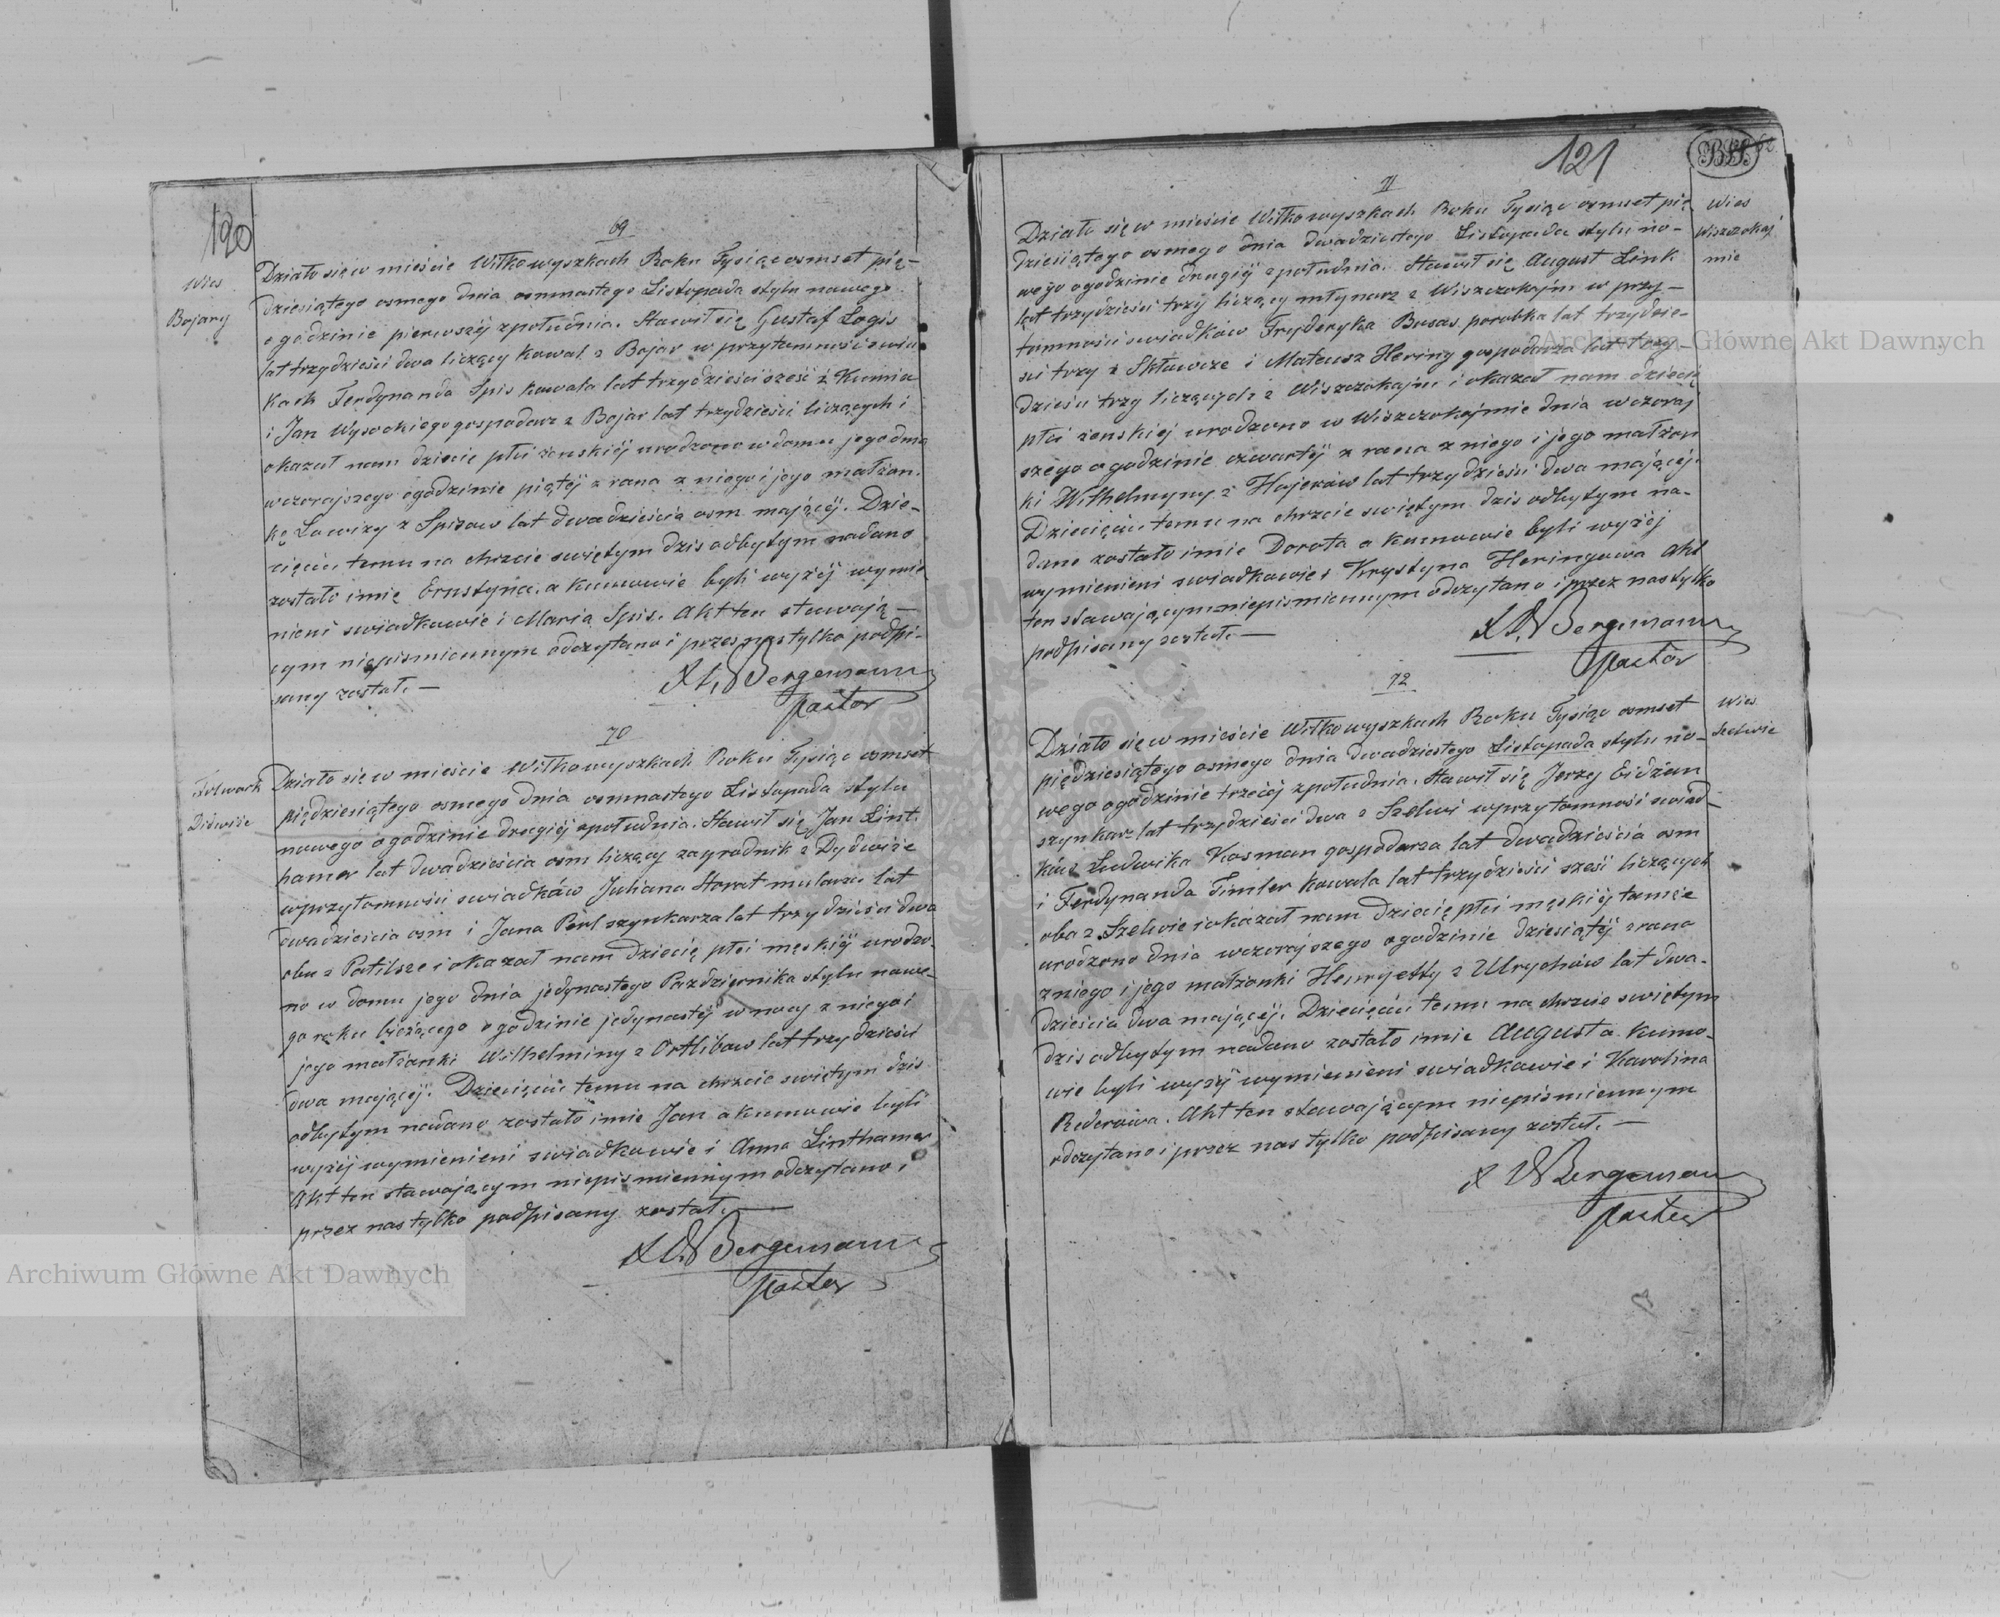 120
Wies
Bojary
69
Działo się w mieście Wiłkowyszkach Roku Tysiąc osmset pię-
dziesiątego osmego dnia osmnastego Listopada stylu nowego
o godzinie pierwszéj z południa. Stawił się Gustaf Logis
lat trzydzieści dwa liczący kowal z Bojar w przytomności swiad
kach Ferdynanda Spis kowala lat trzydzieści sześć z
i Jan Wysockiego gospodarz z Bojar lat trzydzieści liczących i
okazał nam dziecię płci żenskiéj urodzone w domu jego dnia
wczorajszego o godzinie piątéj z rana z niego i jego małżon.
kę Lowizy z Spisow lat dwadzieścia osm mającéj. Dzie-
cięciu temu na chrzcie swiętym dzis odbytym nadano
zostało imię Ernstyna, a kumowie byli wyżéj wymie
nieni swiadkowie i Maria Spis. Akt ten stawają-
cym niepismiennym odczytano i przez nas tylko podpi-
sany został. —
Bergemann
Pastor
70
Folwark
Didwiże
Działo się w mieście Wiłkowyszkach Roku Tysiąc osmset
piędziesiątego osmego dnia osmnastego Listopada stylu
nowego o godzinie drugiéj z południa. Stawił się Jan Lint.
hamer lat dwadzieścia osm liczący zagrodnik z Dydwiże
w przytomności swiadków Juliana Storat mularza lat
dwadzieścia osm i Jana Perl szynkarza lat trzydzieści dwa
obu z Patilsze i okazał nam dziecię płci męskiéj urodzo-
no w domu jego dnia jedynastego Pazdziernika stylu nowe-
go roku bieżącego o godzinie jedynastéj w nocy z niego i
jego małżonki Wilhelminy z Ortlibow lat trzydzieści
dwa mającéj. Dziecięciu temu na chrzcie swiętym dzis
odbytym nadano zostało imie Jan a kumowie byli
wyżéj wymienieni swiadkowie i Anna Linthamer
Akt ten stawającym niepismiennym odczytano i
przez nas tylko podpisany został. —
Bergemann
Pastor
121
71
Wies
Wiszczokaj
mie
Działo się w mieście Wiłkowyszkach Roku Tysiąc osmset pię
dziesiątego osmego dnia dwadziestego Listopada stylu no-
wego o godzinie drugiéj z południa. Stawił się August Link
lat trzydzieści trzy liczący młynarz z Wiszczokajm w przy-
tomności swiadków Fryderyka Busas parobka lat trzydzie-
sci trzy z Skławcze i Mateusz Hering gospodarza lat trzy-
dziesci trzy liczących z Wiszczokajm i okazał nam dziecię
płci żenskiej urodzono w Wiszczokajmie dnia wczoraj
szego o godzinie czwartéj z rana z niego i jego małżon
ki Wilhelmyny z Hajerów lat trzydzieści dwa mającéj.
Dziecięciu temu na chrzcie swiętym dzis odbytym na-
dano zostało imie Dorota a kumowie byli wyżéj
wymienieni swiadkowie i Krystyna Heringowa Akt
ten stawającym niepismiennym odczytano i przez nas tylko
podpisany został. —
Bergemann
Pastor
72
Wies
Szelwie
Działo się w mieście Wiłkowyszkach Roku Tysiąc osmset
piędziesiątego osmego dnia dwadziestego Listopada stylu no-
wego o godzinie trzeciéj z południa. Stawił się Jerzy Eidżan
szynkarz lat trzydzieści dwa z Szelwi w przytomności swiad-
ków Ludwika Kosman gospodarza lat dwadzieścia osm
i Ferdynanda Timler kowala lat trzydzieści sześć liczących
oba z Szelwie i okazał nam dziecię płci męskiéj tamże
urodzono dnia wczorajszego o godzinie dziesiątéj z rana
z niego i jego małżonki Henryetty z Ulrychów lat dwa-
dzieścia dwa mającéj. Dziecięciu temu na chrzcie swiętym
dzis odbytym nadano zostało imie August a kumo-
wie byli wyżéj wymienieni swiadkowie i Karolina
Rederowa. Akt ten stawającym niepismiennym
odczytano i przez nas tylko podpisany został. —
Bergemann
Pastor
Archiwum Główne Akt Dawnych
Archiwum Główne Akt Dawnych